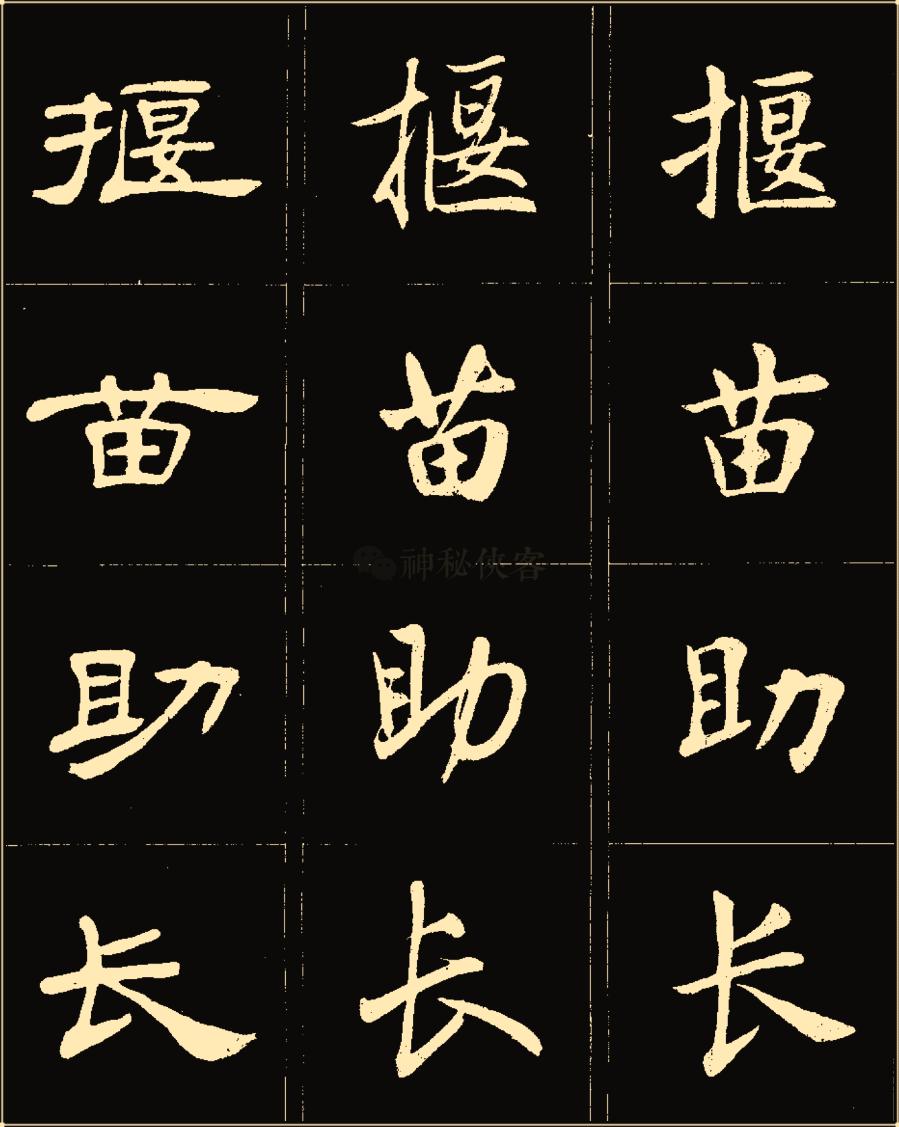 揠 揠 揠
苗 苗 苗
神秘侠客
助 助 助
长 长 长